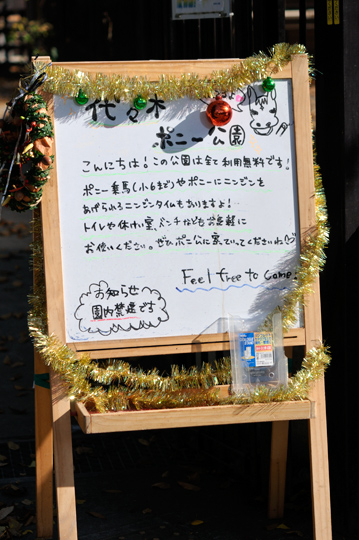 代々木
ポニー公園
こんにちは!この公園は全て利用無料です!
ポニー乗馬(小6まで)やポニーにニンジンを
あげられるニンジンタイムもありますよ!
トイレや休けい室、ベンチなどもお気軽に
お使いください。ぜひポニーに会いに来てくださいね
Feel free to come!
お知らせ
園内禁煙です